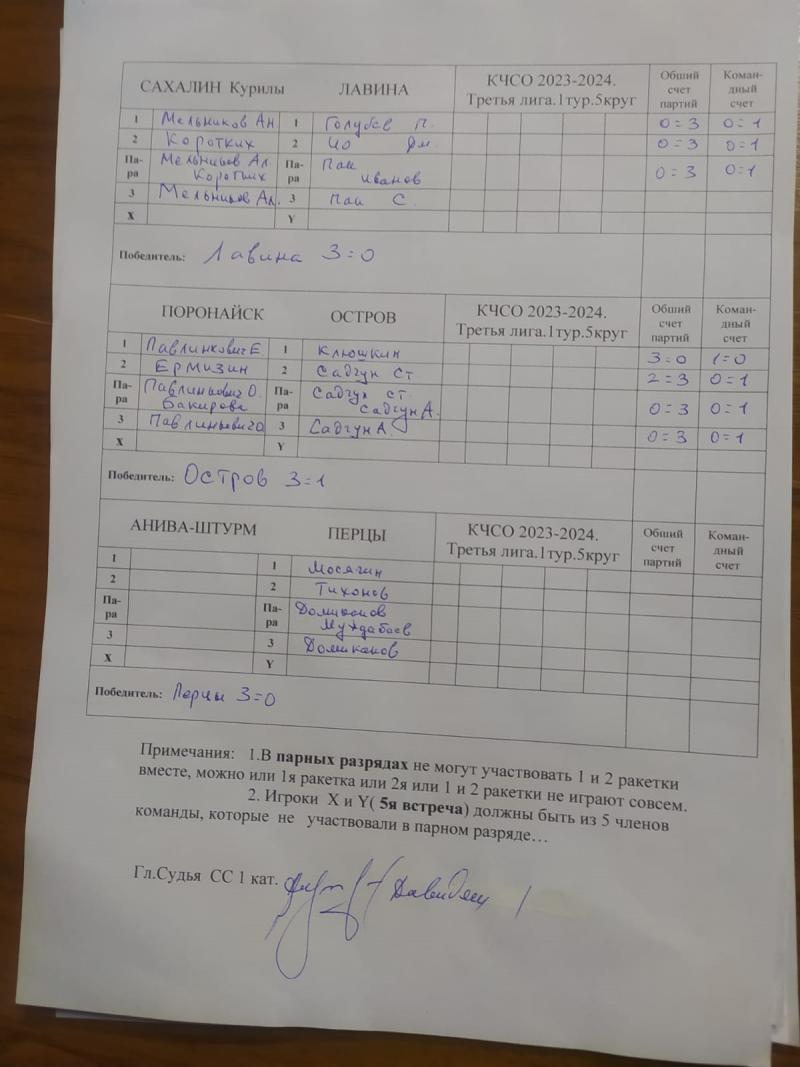 САХАЛИН Курилы ЛАВИНА КЧСО 2023-2024. Третья лига.1тур.5круг Общий счет партий Коман-дный счет
1 Мельников Ан 1 Голубев П. 0=3 0=1
2 Коротких 2 Чо Дм. 0=3 0=1
Па-ра Мельников Ал Коротких Па-ра Пак Иванов 0=3 0=1
3 Мельников Ал. 3 Пак С.
X Y
Победитель: Лавина 3=0
ПОРОНАЙСК ОСТРОВ КЧСО 2023-2024. Третья лига.1тур.5круг Общий счет партий Коман-дный счет
1 Павлинкович Е 1 Клюшкин 3=0 1=0
2 Ермизин 2 Садгун Ст 2=3 0=1
Па-ра Павлинькович О. Бакирова Па-ра Садгун Ст. Садгун А. 0=3 0=1
3 Павлинькович О 3 Садгун А. 0=3 0=1
X Y
Победитель: Остров 3=1
АНИВА-ШТУРМ ПЕРЦЫ КЧСО 2023-2024. Третья лига.1тур.5круг Общий счет партий Коман-дный счет
1 1 Мосягин
2 2 Тихонов
Па-ра Па-ра Домиканов Муждабаев
3 3 Домиканов
X Y
Победитель: Перцы 3=0
Примечания: 1.В парных разрядах не могут участвовать 1 и 2 ракетки
вместе, можно или 1я ракетка или 2я или 1 и 2 ракетки не играют совсем.
2. Игроки X и Y( 5я встреча) должны быть из 5 членов
команды, которые не участвовали в парном разряде…
Гл.Судья СС 1 кат.